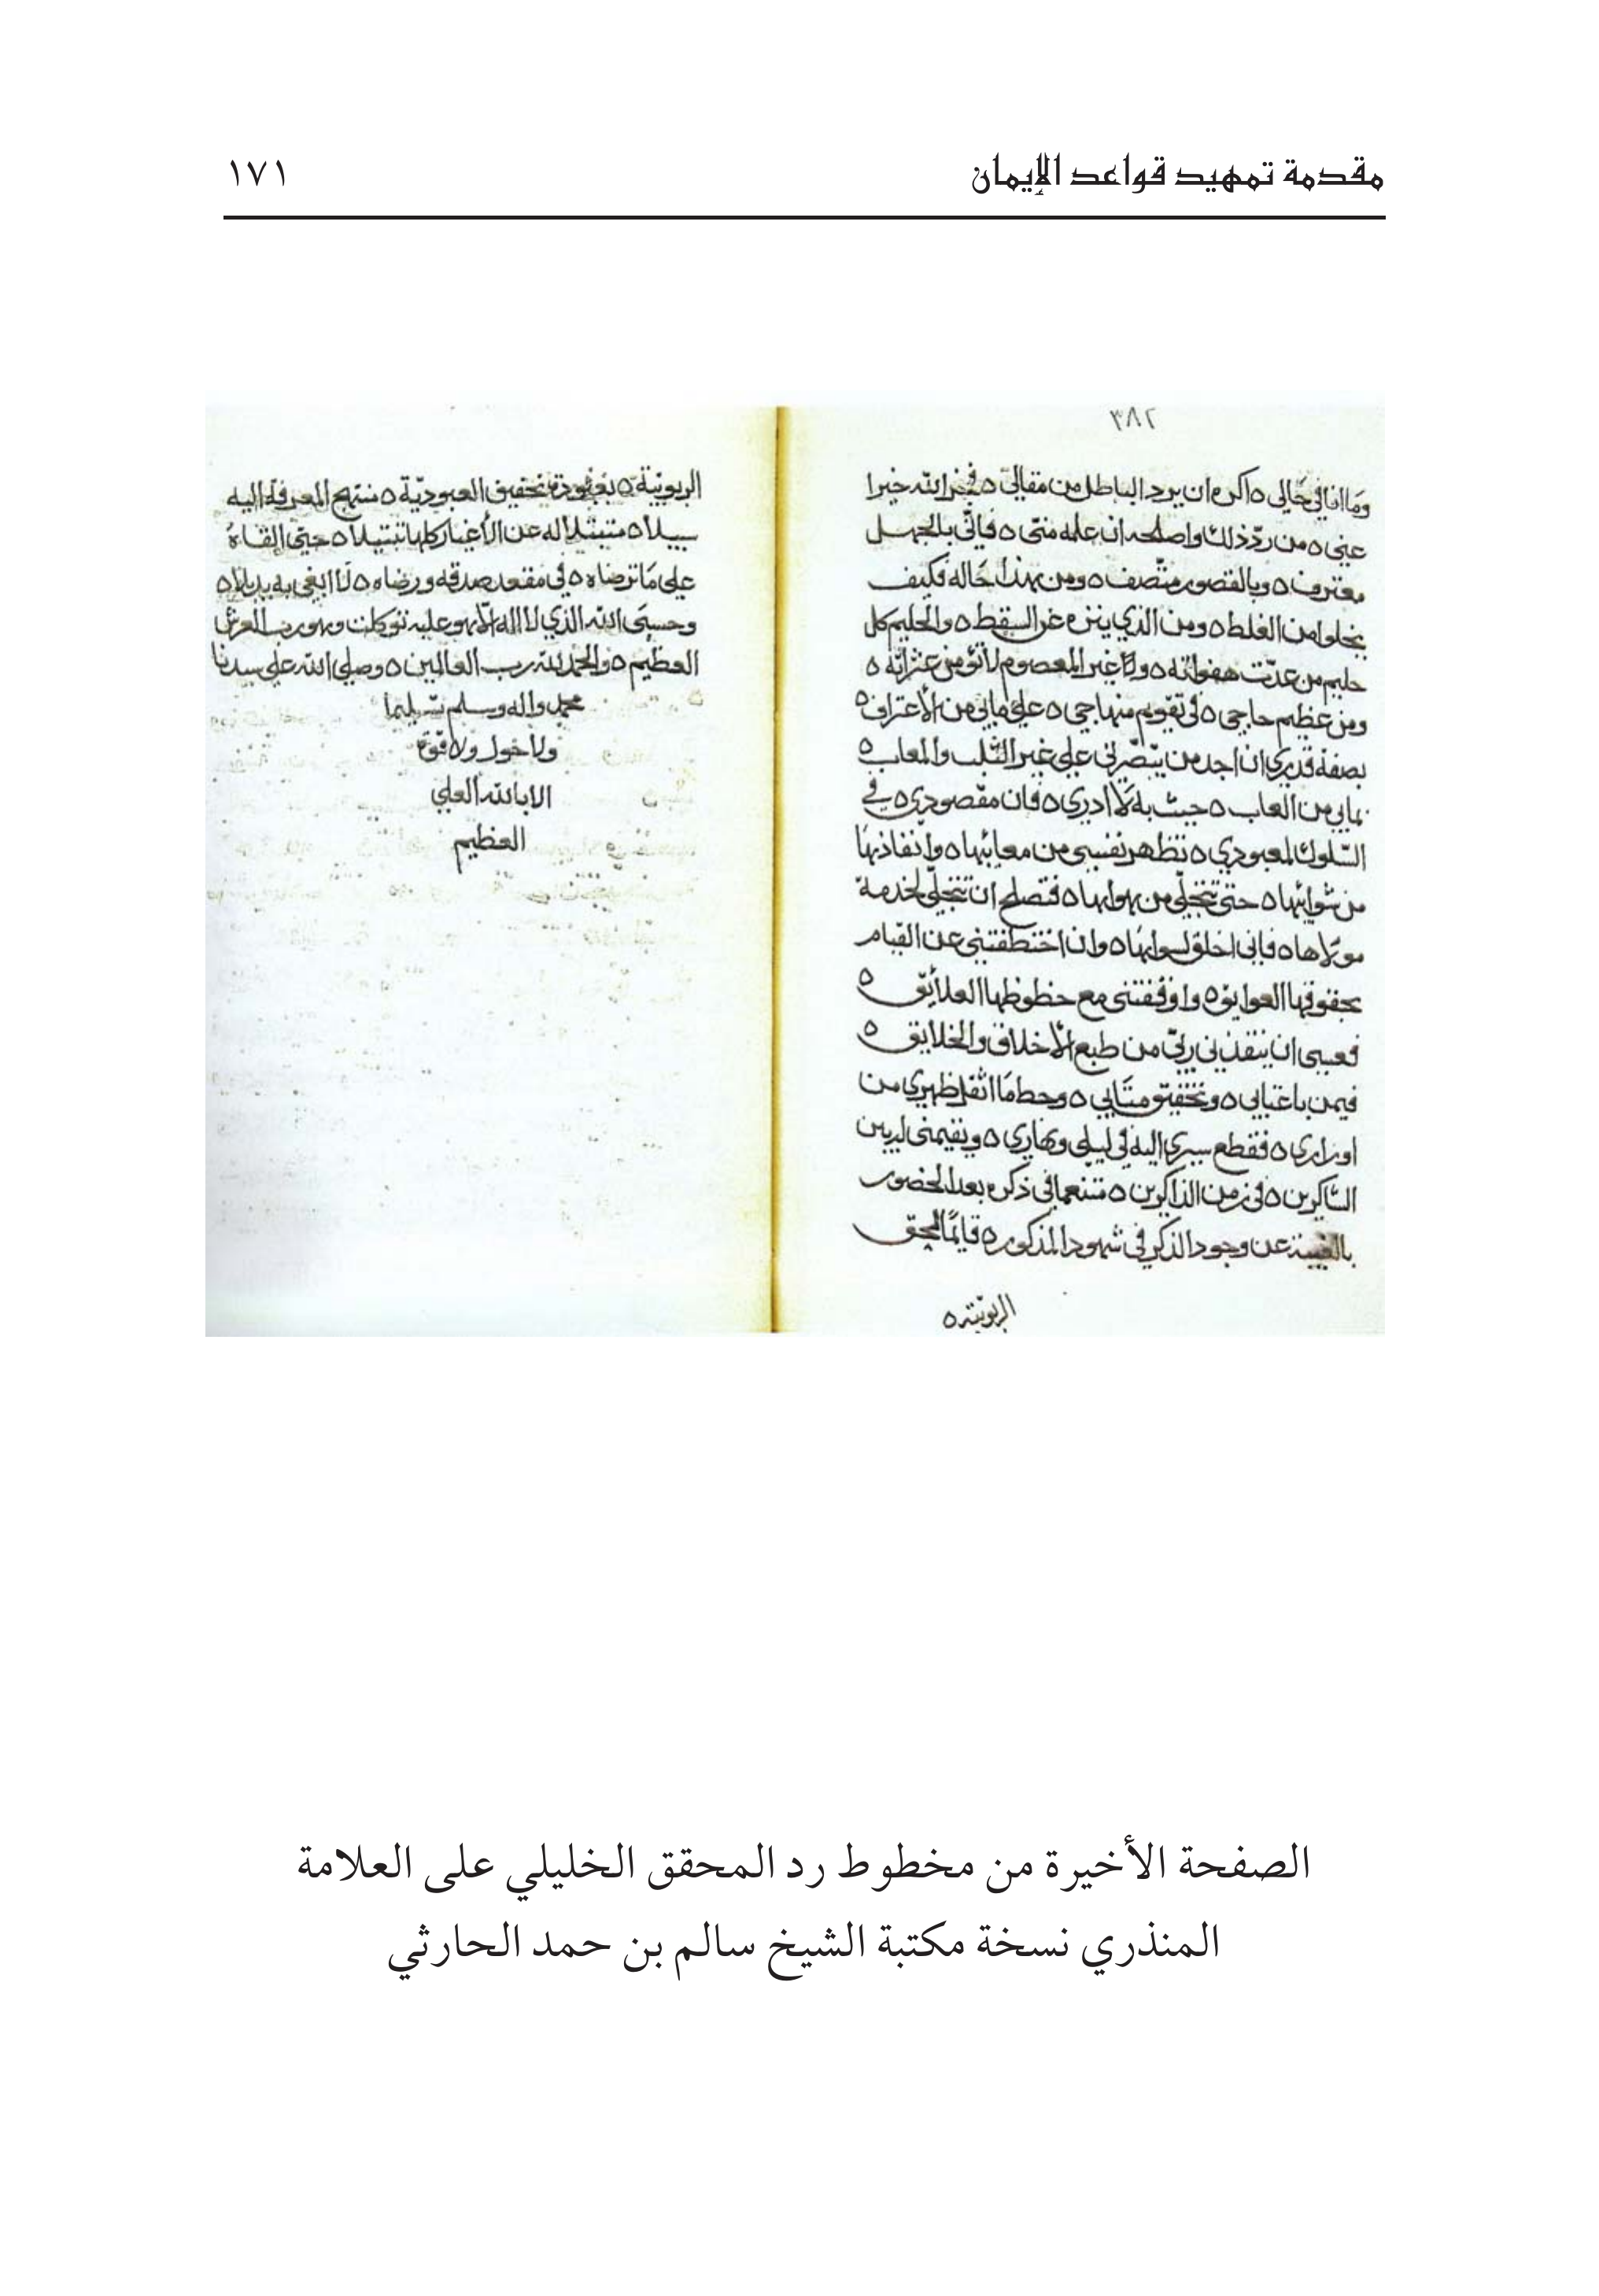 مقدمة تمهيد قواعد الإيمان ١٧١
٣٨٢
وما انا في حالي ٥ اكره ان يرد الباطل من مقالي ٥ فجزا الله خيرا
عني ٥ من ردّ ذلك واصلحه ان علمه منّي ٥ فانّي بالجهل
معترف ٥ وبالقصور متّصف ٥ ومن بهذا حاله فكيف
يخلو من الغلط ٥ ومن الذي ينزه عن السقط ٥ والحليم كل
حليم من عدّت هفواته ٥ ولا غير المعصوم لا تؤمن عثراته ٥
ومن عظيم حاجي ٥ في تقويم منهاجي ٥ على ما بي من الاعتراف ٥
بصفة قدري ان اجد من يبصّرني على غير الثلب والمعاب ٥
بما بي من العاب ٥ حيث به لا ادري ٥ فان مقصودي ٥ في
السّلوك لمعبودي ٥ تطهر نفسي من معائبها ٥ وانقاذها
من شوائبها ٥ حتى تتخلّى من هواها ٥ فتصلح ان تتجلّى لخدمة
مولاها ٥ فاني اخلق لسواها ٥ وان اختطفتني عن القيام
بحقوقها العوايق ٥ واوقفتني مع حظوظها العلائق ٥
فعسى ان ينقذني ربّي من طبع الأخلاق والخلايق ٥
فيمن باعتابي ٥ وتحقيق متابي ٥ وحط ما اثقل ظهري من
اوزاري ٥ فقطع سيري اليه في ليلي ونهاري ٥ ويقيمني لديه بين
الشاكرين ٥ في زمن الذاكرين ٥ متنعما في ذكره بعد الحضور
بالغيبة عن وجود الذكر في شهود المذكور ٥ قايما لمحق
الربوبيّة ٥
الربوبيّة ٥ تحقيق العبوديّة ٥ منتهج المعرفة اليه
سبيلا ٥ متبتلا له عن الأغيار كلها تبتيلا ٥ حتى القاه
على ما ترضاه ٥ في مقعد صدقه ورضاه ٥ لا ابغي به بديلا ٥
وحسبي الله الذي لا اله الا هو عليه توكلت وهو رب العرش
العظيم ٥ والحمد لله رب العالمين ٥ وصلى الله على سيدنا
محمد واله وسلم تسليما
ولا حول ولا قوة
الا بالله العلي
العظيم
الصفحة الأخيرة من مخطوط رد المحقق الخليلي على العلامة
المنذري نسخة مكتبة الشيخ سالم بن حمد الحارثي